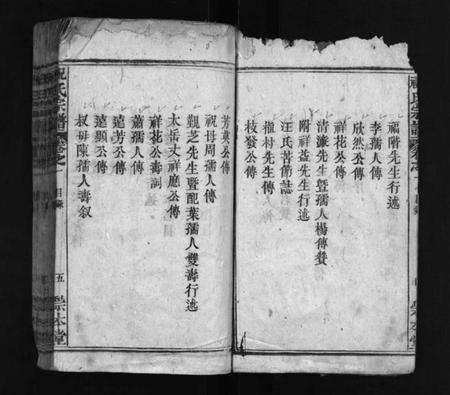 祝氏宗譜
福階先生行述
李孺人傳
欣然公傳
祥花公傳
清濂先生暨孺人楊傳贊
附祥益先生行述
汪氏苦節誌
植村先生傳
枝發公傳
芳蓁公傳
祝母周孺人傳
覲芝先生暨配葉孺人雙壽行述
太岳丈祥廳公傳
祥花公壽詞
蕭孺人傳
遠芳公傳
遠顯公傳
叔母陳孺人壽叙
祝氏宗譜
目錄
五
崇本堂